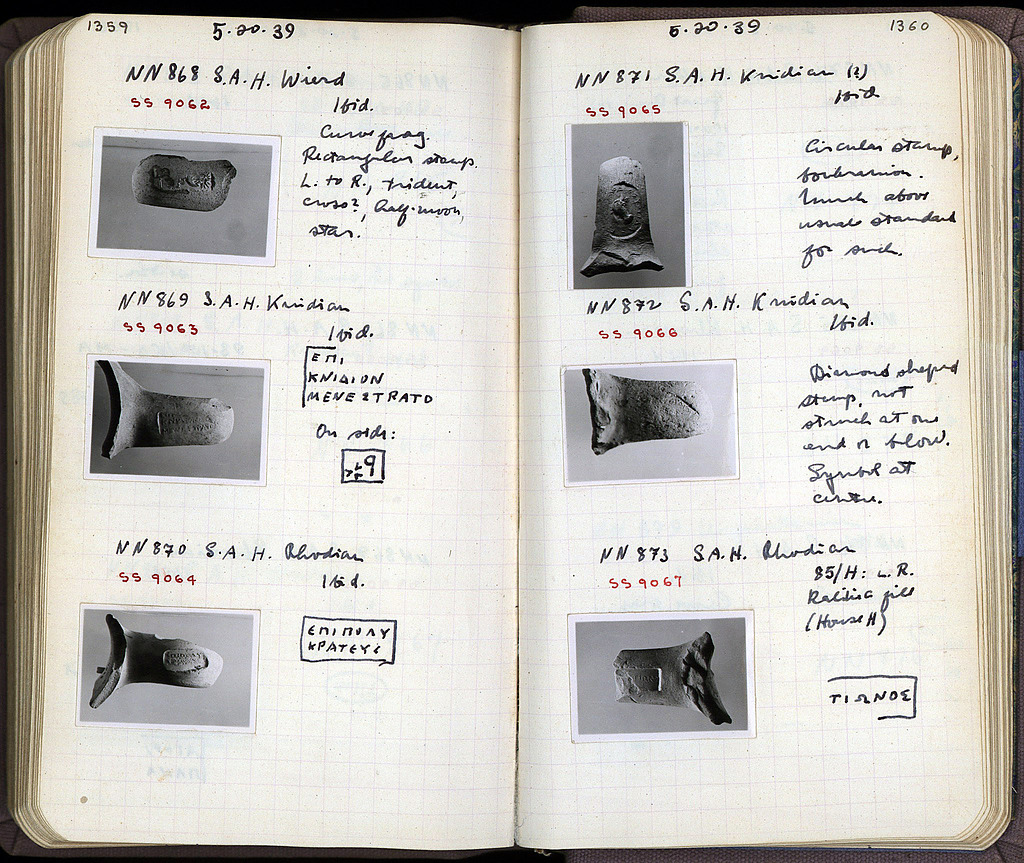 1359
5·20·39
NN868 S.A.H. Wierd
SS 9062
Ibid.
Curve frag.
Rectangular stamp.
L. to R., trident,
cross?, half-moon,
star.
NN869 S.A.H. Knidian
SS 9063
Ibid.
ΕΠΙ
ΚΝΙΔΙΟΝ
ΜΕΝΕΣΤΡΑΤΟ
On side:
NN870 S.A.H. Rhodian
SS 9064
Ibid.
ΕΠΙΠΟΛΥ
ΚΡΑΤΕΥΣ
1360
5·20·39
NN871 S.A.H. Knidian (?)
Ibid
SS 9065
Circular stamp,
Much above
usual standard
for such.
NN872 S.A.H. Knidian
Ibid.
SS 9066
Diamond shaped
stamp, not
struck at one
end or blow.
Symbol at
centre.
NN873 S.A.H. Rhodian
SS 9067
85/Η: L.R.
fill
(House H)
ΤΙΩΝΟΣ